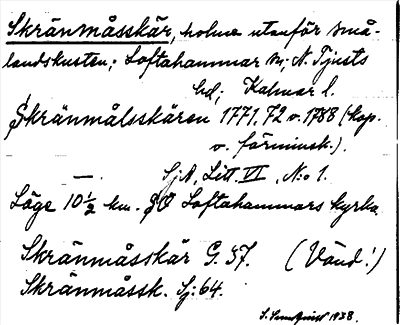 Skränmåsskär, holme utanför små-
landskusten; Loftahammar sn; N. Tjusts
hd; Kalmar l.
Skränmålsskären 1771, 72 o. 1788 (kop.
o. förminsk.).
—. SjA, Litt VI, No 1.
Läge 10½ km. SO Loftahammars kyrka
Skränmåsskär G. 37. (Vänd!)
Skränmåssk. Sj: 64.
1938.